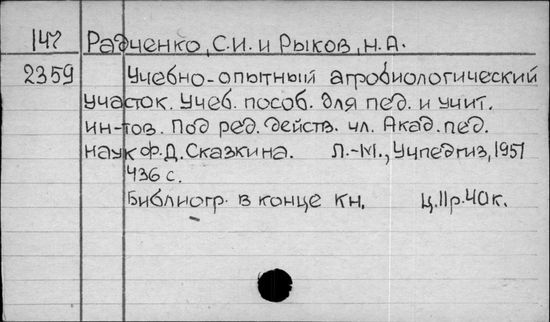 147 Радченко, С.И. и Рыков, Н.А.
2359 Учебно-опытный агробиологический
участок. Учеб. пособ. для пед. и учит.
ин-тов. Под ред. действ. чл. Акад. пед.
наук Ф.Д. Сказкина. Л.-М., Учпедгиз, 1951
436 с.
Библиогр. в конце кн. Ц. 11 р. 40 к.